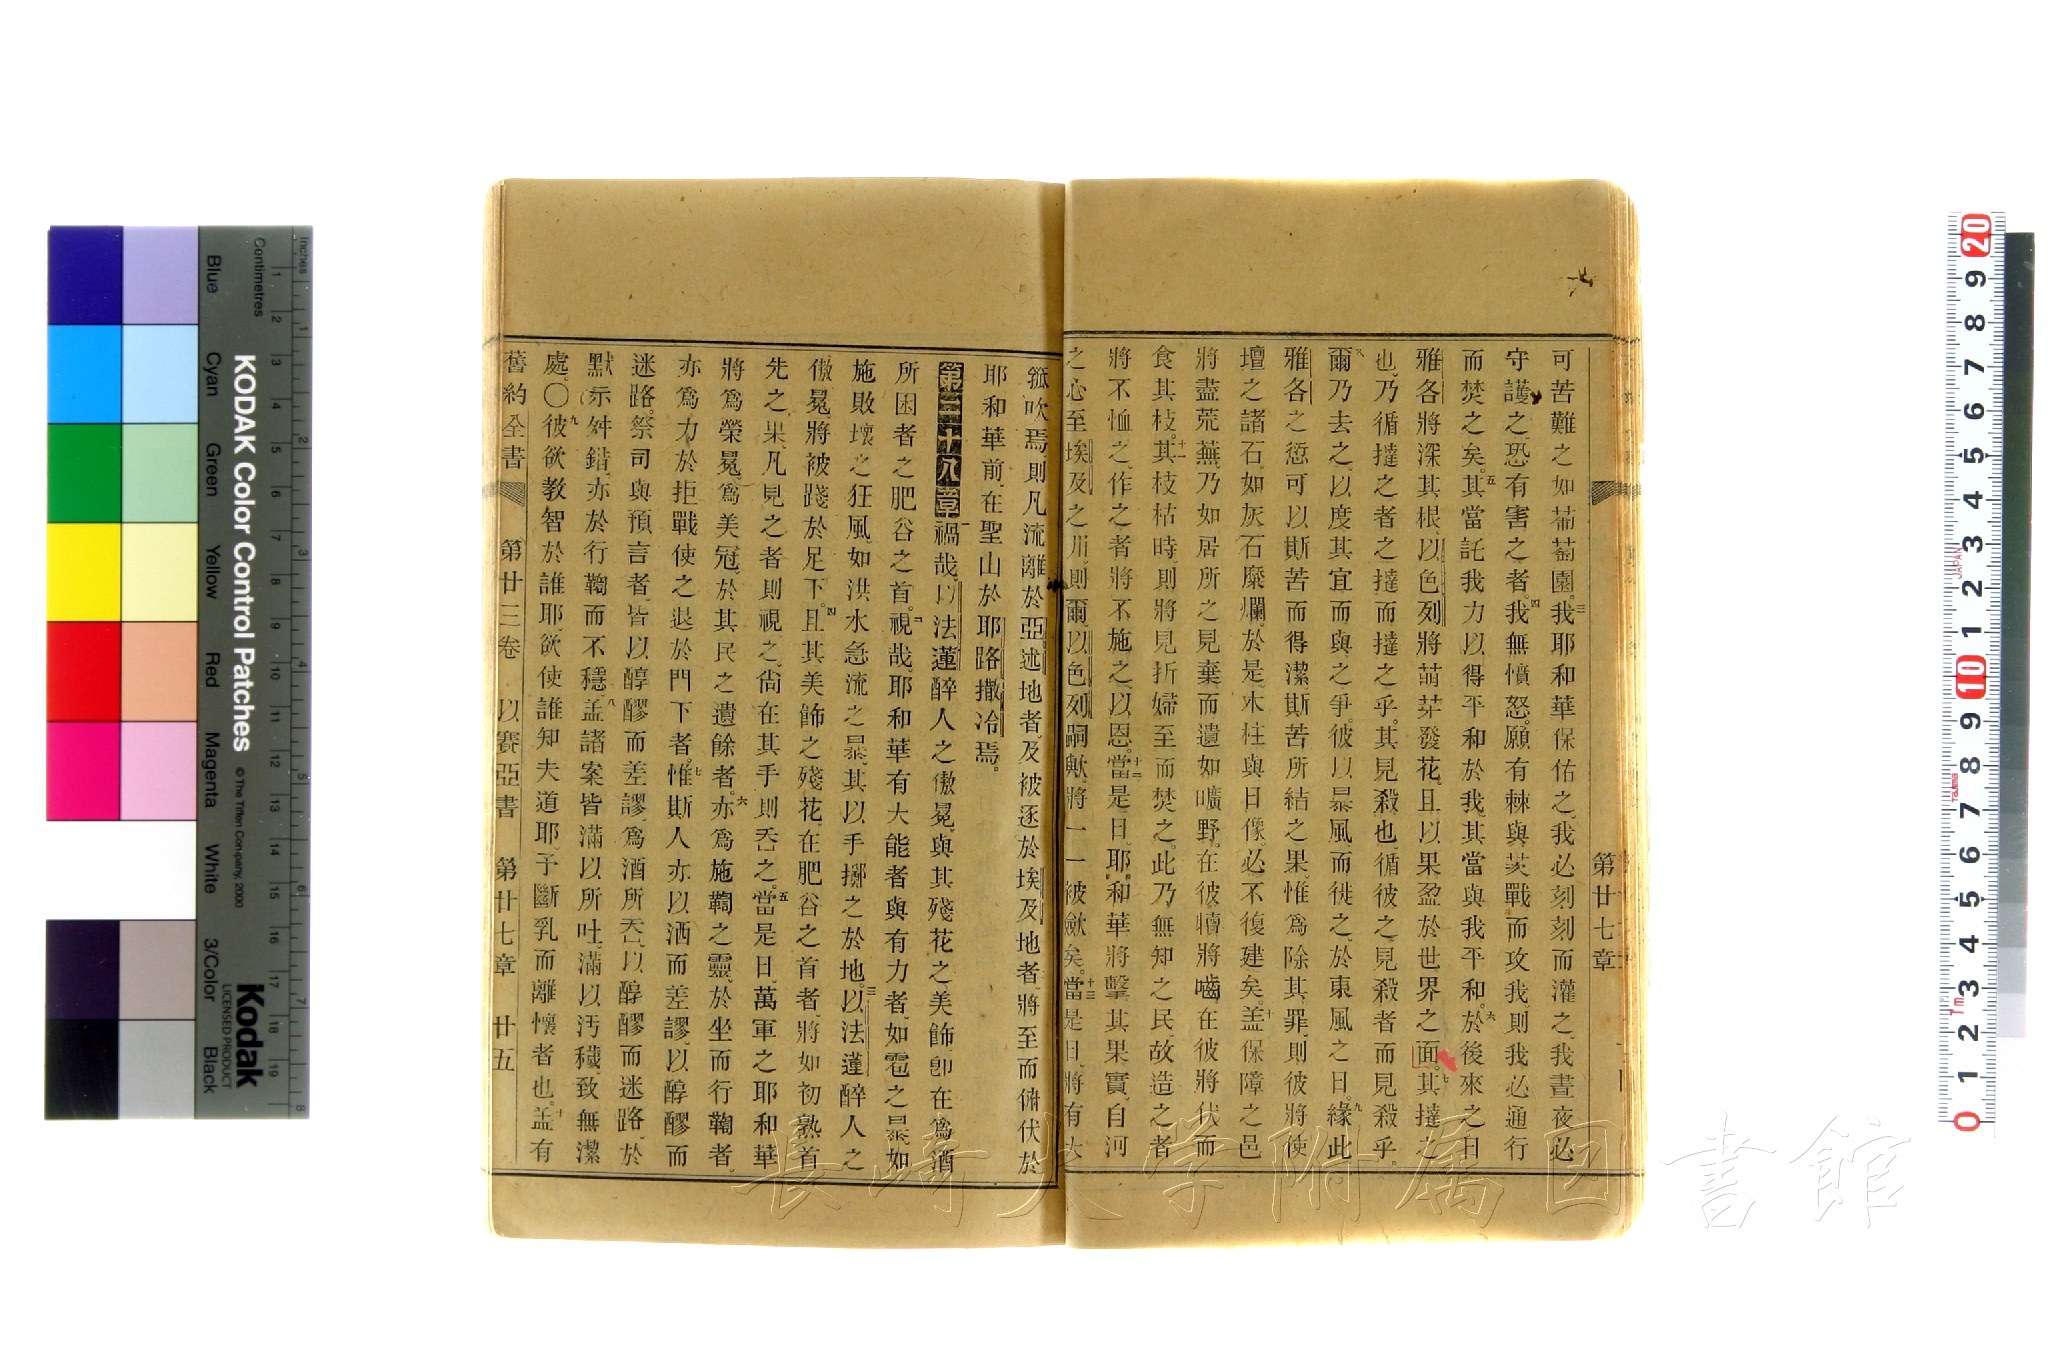 第廿七章
可苦難之如葡萄園。三我耶和華保佑之、我必刻刻而灌之、我晝夜必
守護之、恐有害之者。四我無憤怒、願有棘與茨戰而攻我、則我必通行
而焚之矣。五其當託我力以得平和於我、其當與我平和。六於後來之日
雅各將深其根、以色列將萌芽發花、且以果盈於世界之面。七其撻之
也、乃循撻之者之撻而撻之乎、其見殺也、循彼之見殺者而見殺乎。
八爾乃去之、以度其宜而與之爭、彼以暴風而徙之、於東風之日。九緣此
雅各之愆可以斯苦而得潔、斯苦所結之果、惟為除其罪、則彼將使
壇之諸石、如灰石糜爛、於是木柱與日像、必不復建矣。十盖保障之邑
將盡荒蕪、乃如居所之見棄而遺如曠野、在彼犢將嚙、在彼將伏而
食其枝。十一其枝枯時、則將見折、婦至而焚之、此乃無知之民、故造之者
將不恤之、作之者將不施之、以恩。十二當是日、耶和華將擊其果實、自河
之心至埃及之川、則爾以色列嗣歟、將一一被歛矣。十三當是日、將有大
箛吹焉、則凡流離於亞述地者、及被逐於埃及地者、將至而俯伏於
耶和華前、在聖山於耶路撒冷焉。
第二十八章 一禍哉、以法蓮醉人之傲冕、與其殘花之美飾、卽在為酒
所困者之肥谷之首。二視哉、耶和華有大能者與有力者、如雹之暴、如
施敗壞之狂風、如洪水急流之暴、其以手擲之於地。三以法蓮醉人之
傲冕將被踐於足下。四且其美飾之殘花、在肥谷之首者、將如初熟首
先之果、凡見之者則視之、尚在其手則吞之。五當是日、萬軍之耶和華
將為榮冕、為美冠、於其民之遺餘者。六亦為施鞫之靈、於坐而行鞫者、
亦為力於拒戰使之退於門下者。七惟斯人亦以酒而差謬、以醇醪而
迷路、祭司與預言者、皆以醇醪而差謬、為酒所吞、以醇醪而迷路、於
默示舛錯、亦於行鞫而不穩。八盖諸案皆滿以所吐、滿以汚穢、致無潔
處。〇九彼欲教智於誰耶、欲使誰知夫道耶、予斷乳而離懷者也。十盖有
舊約全書 第廿三卷 以賽亞書 第廿七章 廿五
KODAK Color Control Patches
© The Tiffen Company, 2000
Kodak
LICENSED PRODUCT
Inches
Centimetres
Blue
Cyan
Green
Yellow
Red
Magenta
White
3/Color
Black
JAPAN
長崎大学附属図書館